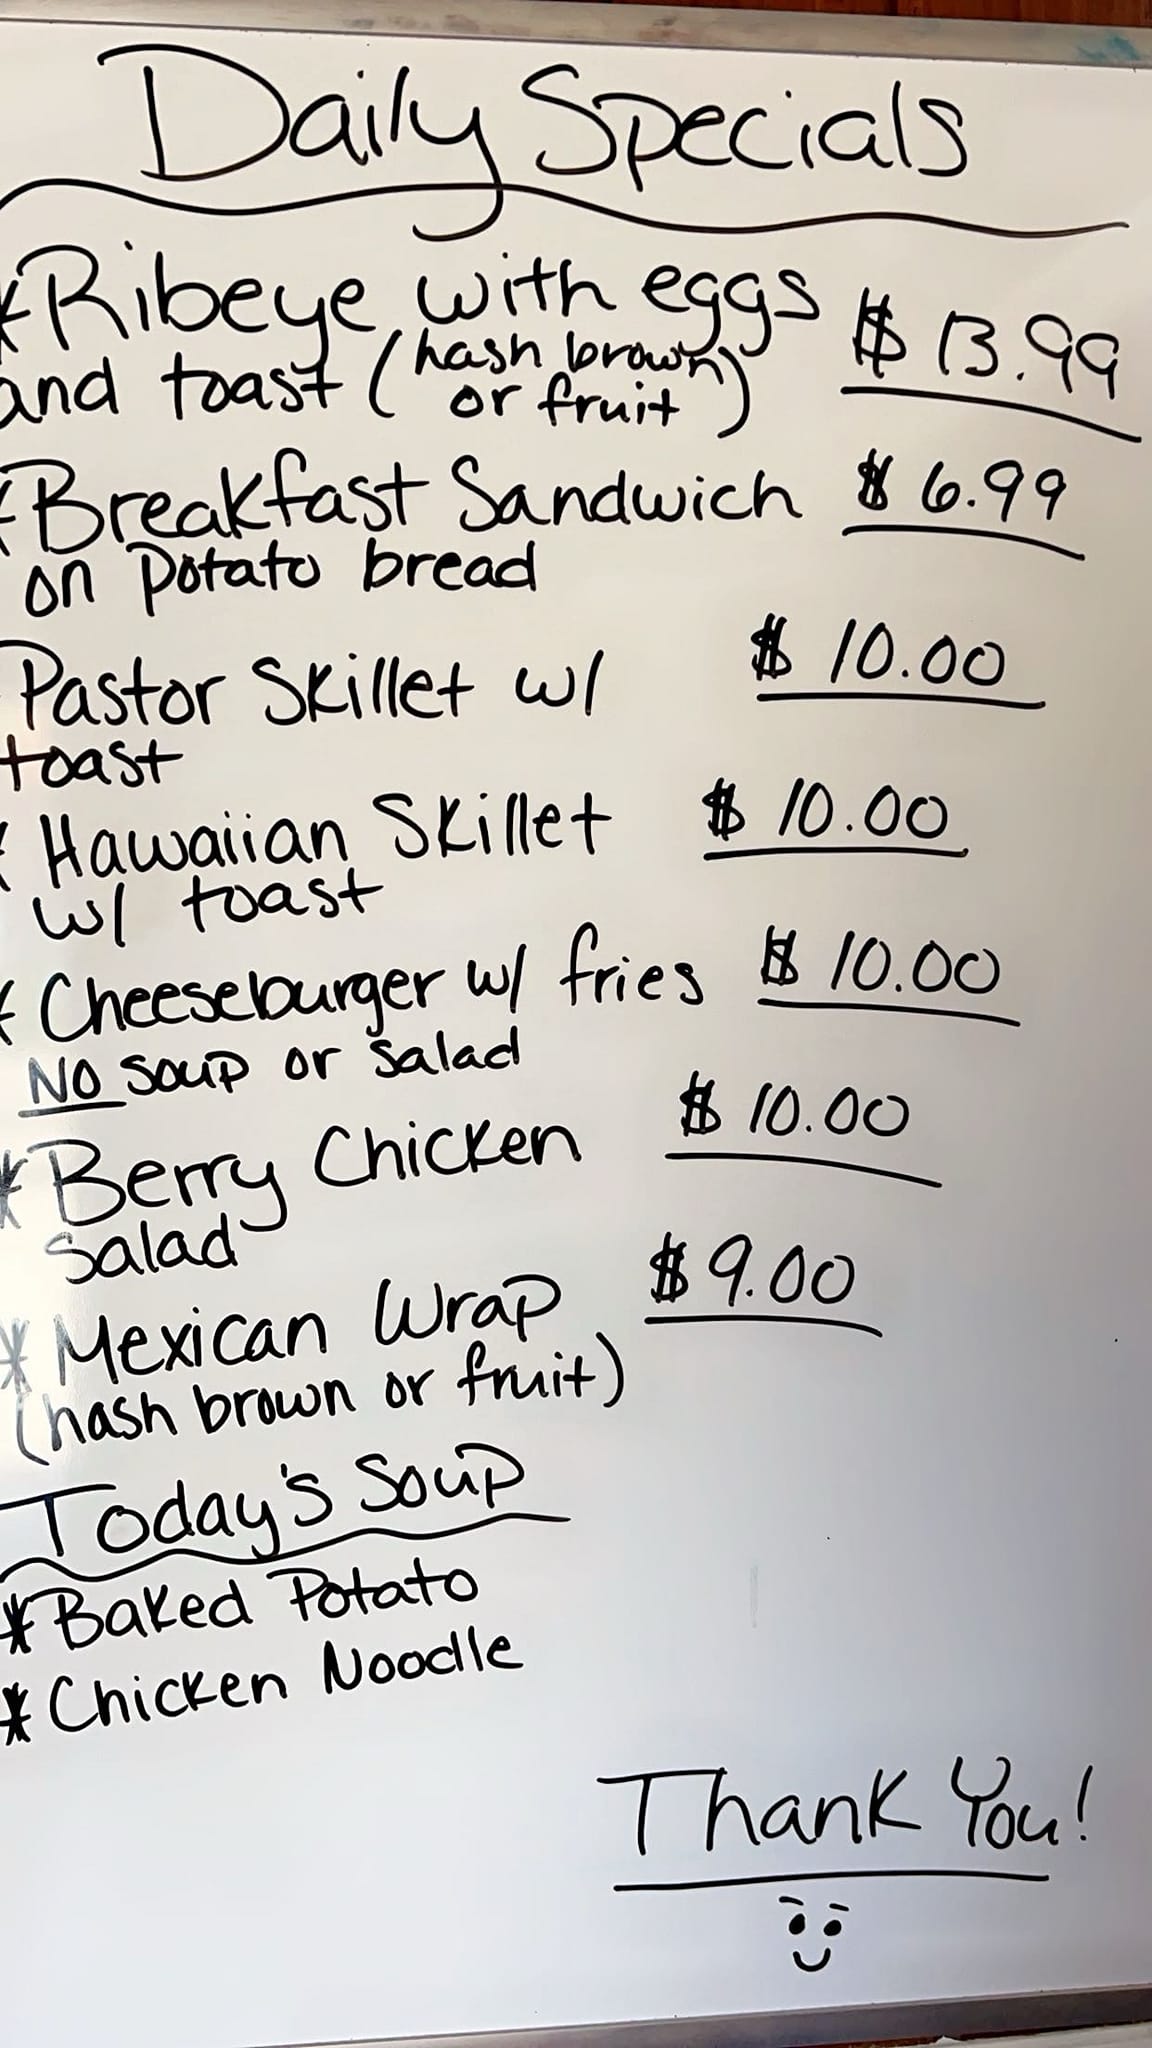 Daily Specials
*Ribeye with eggs $13.99
and toast (hash brown
or fruit)
*Breakfast Sandwich $6.99
on Potato bread
Pastor Skillet w/ $10.00
toast
* Hawaiian Skillet $10.00
w/ toast
* Cheeseburger w/ fries $10.00
NO soup or salad
*Berry Chicken $10.00
Salad
*Mexican Wrap $9.00
(hash brown or fruit)
Today's Soup
*Baked Potato
*Chicken Noodle
Thank You!